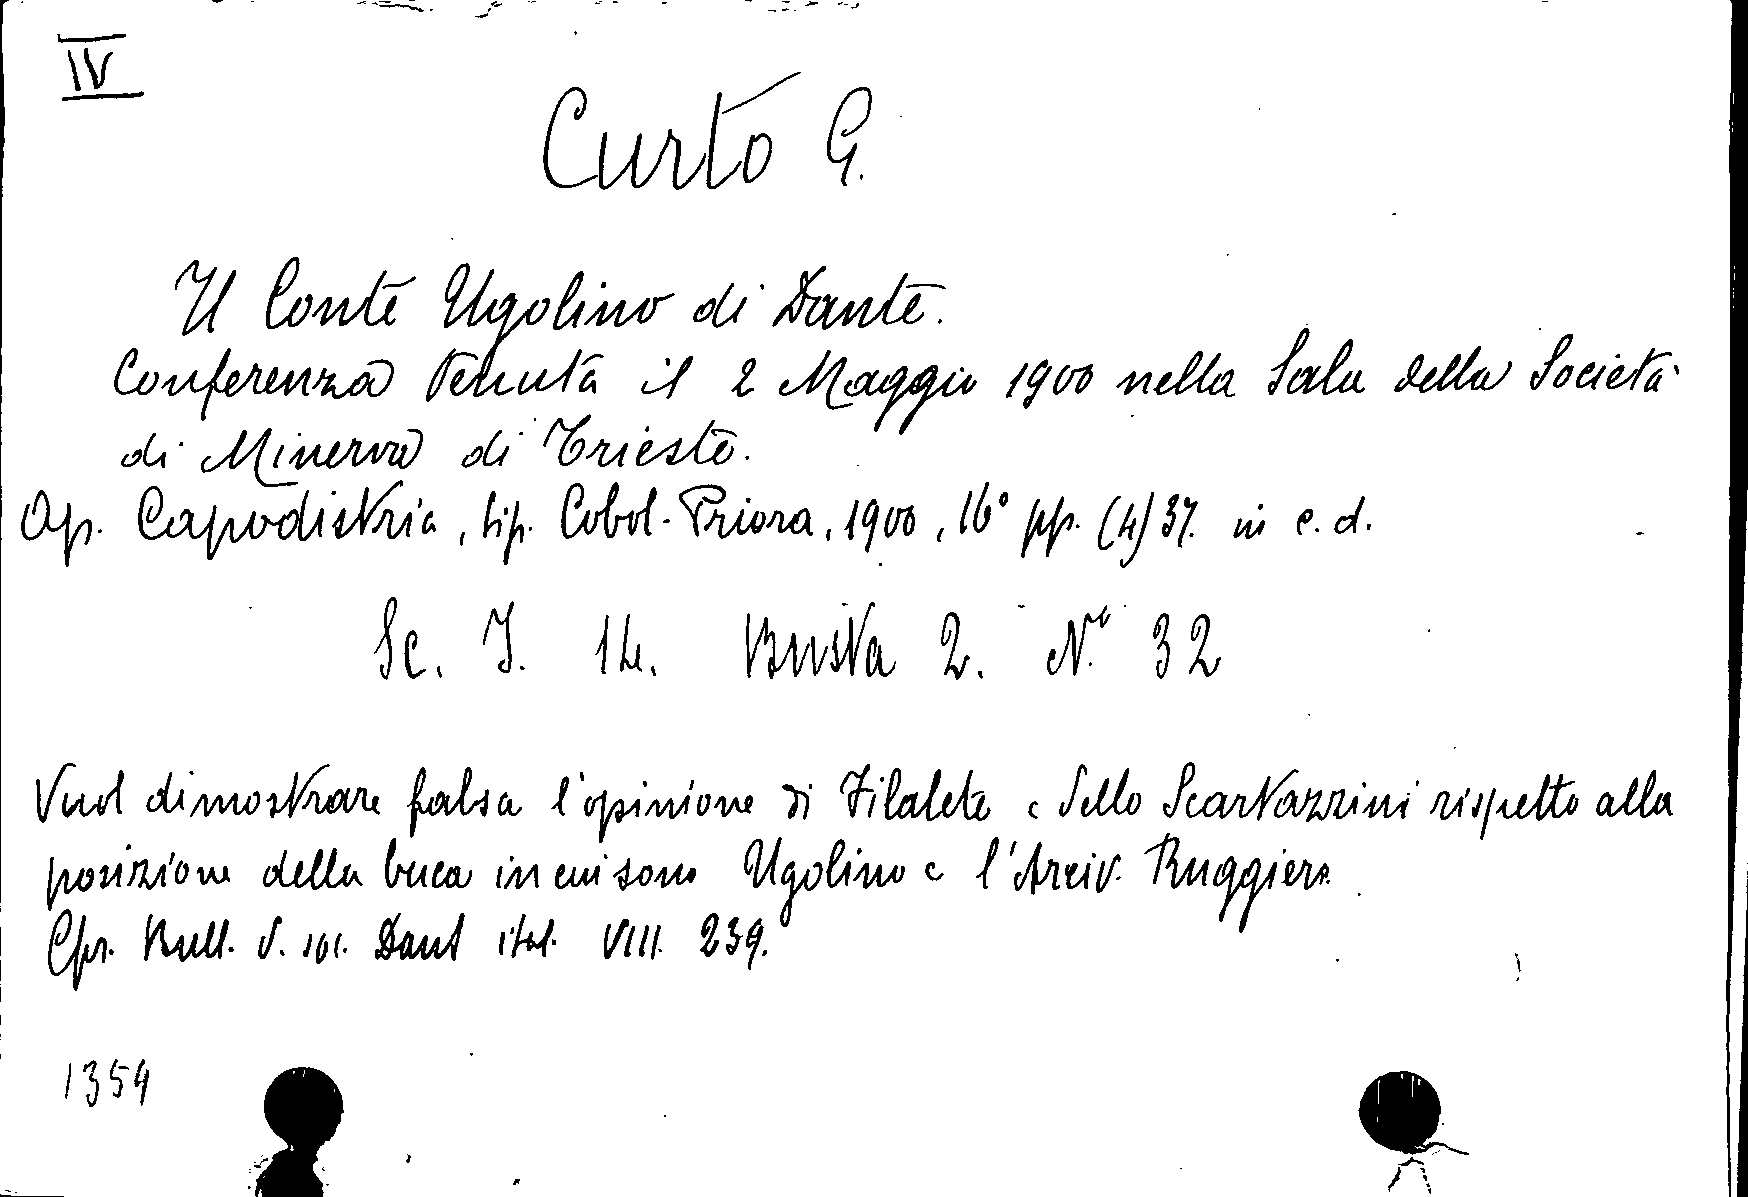 IV
Curto G.
Il Conte Ugolino di Dante.
Conferenza tenuta il 2 Maggio 1900 nella Sala della Società
di Minerva di Trieste.
Op. Capodistria, tip. Cobol-Priora, 1900, 16° pp. (4) 37. in c. d.
Sc. I. 14. Busta 2. N.° 32
Vuol dimostrare falsa l'opinione di Filalete e dello Scartazzini rispetto alla
posizione della buca in cui sono Ugolino e l'Arciv. Ruggiero.
Cfr. Bull. d. soc. Dant ital. VIII. 239.
1354